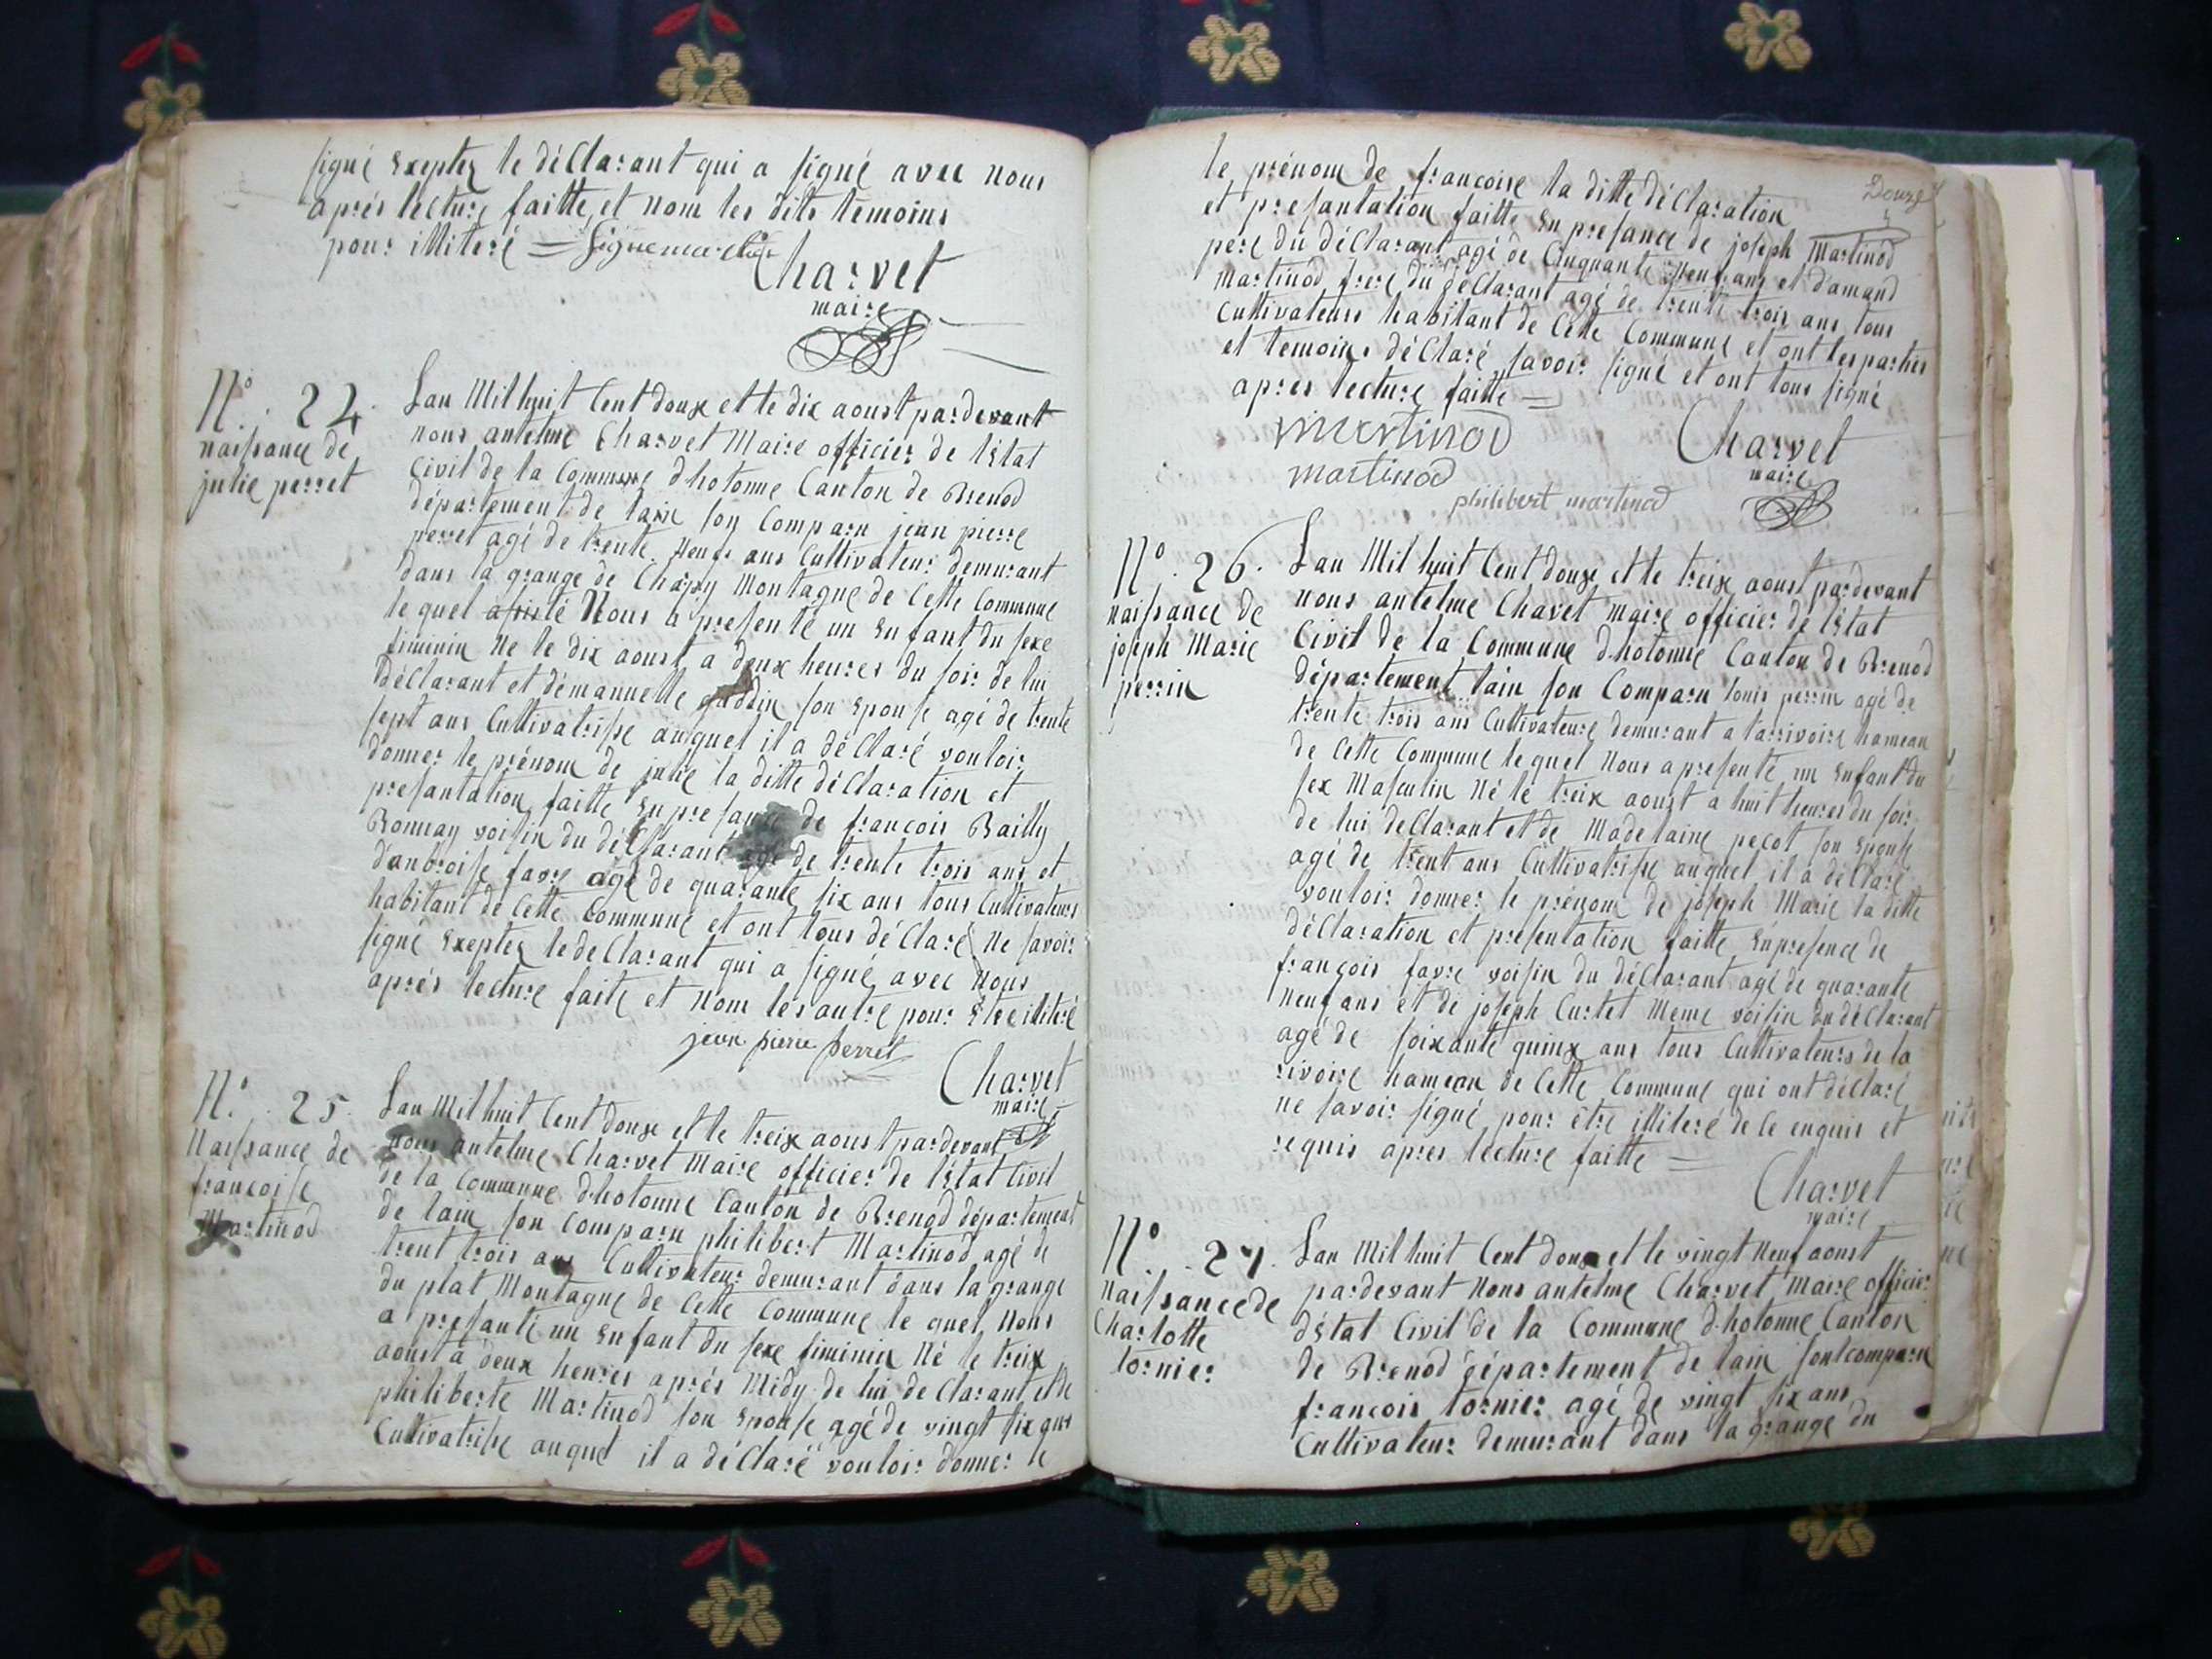 signé Exeptez le déClarant qui a signé avec nous
aprés lecture faitte et nom les dits temoins
pour illiteré =
Charvet
maire
N.° 24
naissance de
julie perret
Lan Mil huit Cent douze et le dix aoust pardevant
nous antelme Charvet Maire officier de lEtat
Civil de la Commune dhotonne Canton de Brenod
département de lain son Comparu jean pierre
perret agé de trente Neuf ans Cultivateur demurant
dans la grange de Chapy Montagne de Cette Commune
le quel Nous a presenté un Enfant du sexe
fiminin Ne le dix aoust a deux heures du soir de lui
déClarant et démanuelle son Epouse agé de trente
sept ans Cultivatrisse auquel il a déClaré vouloir
donner le prénom de julie la ditte déClaration et
presantation faitte En presance de francois Bailly
Bonnay voisin du déClarant agé de trente trois ans et
danbroise favre agé de quarante six ans tous Cultivateurs
habitant de Cette Commune et ont tous déClaré Ne savoir
signé Exeptez le deClarant qui a signé avec Nous
aprés lecture faite et Nom les autre pour Etre illiteré
jean pierre perret
Charvet
maire
N.° 25
Naissance de
francoise
Martinod
Lan Mil huit Cent douze et le treix aoust pardevant
nous antelme Charvet Maire officier de lEtat Civil
de la Commune dhotonne Canton de Brenod département
de lain son Comparu philibert Martinod agé de
trent trois ans Cultivateur demurant dans la grange
du plat Montagne de Cette Commune le quel Nous
a presanté un Enfant du sexe fiminin Né le treix
aoust a deux heures aprés Midy de lui de Clarant et de
philiberte Martinod son Epouse agé de vingt six ans
Cultivatrisse auquel il a déClaré vouloir donner le
Douze
le prénom de francoise la ditte déClaration
et presantation faitte En presance de joseph Martinod
pere du déClarant agé de Cinquante Neuf ans et damand
Martinod frere du déClarant agé de trente trois ans tous
Cultivateurs habitant de Cette Commune et ont les parties
et temoins déClaré savoir signé et ont tous signé
apres lecture faitte =
martinod
martinod
philibert martinod
Charvet
maire
N° 26
naissance de
joseph Marie
perrin
Lan Mil huit Cent douze et le treix aoust pardevant
nous antelme Chavet maire officier de lEtat
Civil de la Commune dhotonne Canton de Brenod
département lain son Comparu louis perrin agé de
trente trois ans Cultivateure demurant a larrivoire hameau
de Cette Commune le quel Nous a presenté un Enfant du
sex Masculin Né le treix aoust a huit heures du soir
de lui deClarant et de Madelaine pecot son Epouse
agé de trent ans Cultivatrisse auquel il a déClaré
vouloir donner le prénom de joseph Marie la ditte
déClaration et presentation faitte Enpresence de
francois favre voisin du déClarant agé de quarante
Neuf ans et de joseph Curtet Meme voisin du déClarant
agé de soixante quinze ans tous Cultivateurs de la
rivoire hameau de Cette Commune qui ont déClaré
ne savoir signé pour être illiteré de le enquis et
requis apres lecture faitte =
Charvet
maire
N° 27
Naissance de
Charlotte
tornier
Lan Mil huit Cent douze et le vingt Neuf aoust
pardevant Nous antelme Charvet Maire officier
dEtat Civil de la Commune dhotonne Canton
de Brenod département de lain sont comparu
francois tornier agé de vingt six ans
Cultivateur demurant dans la grange du